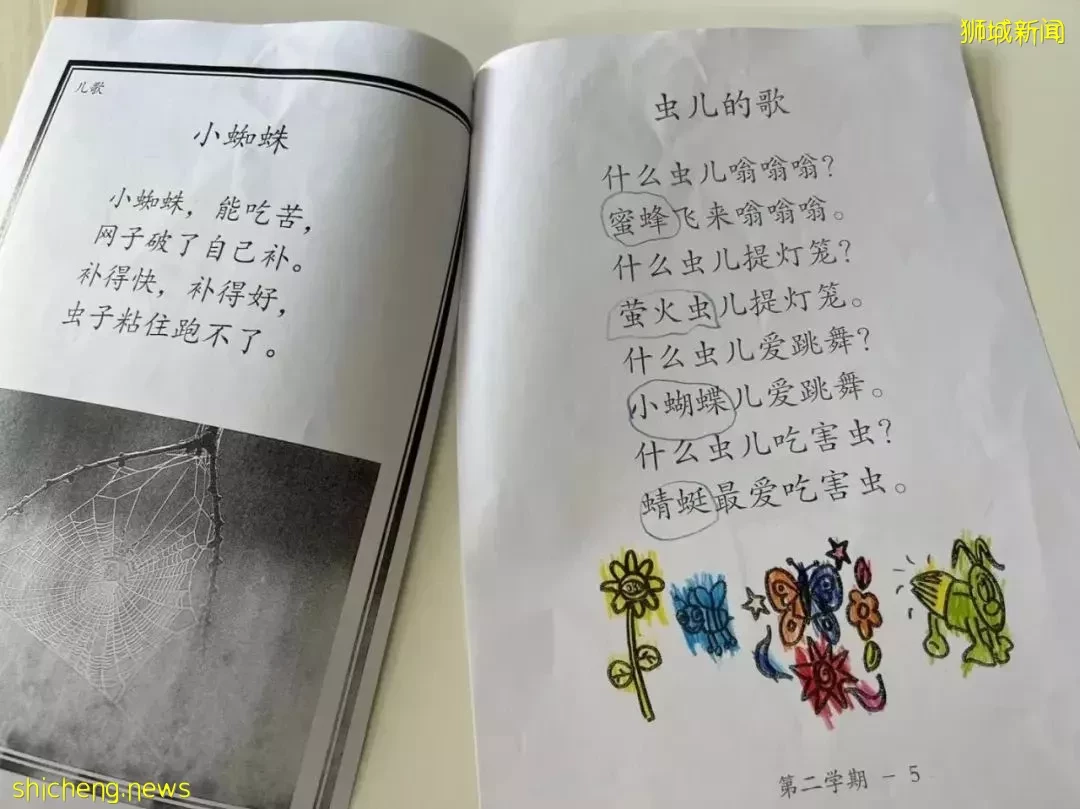 狮城新闻
儿歌
小蜘蛛
小蜘蛛，能吃苦，
网子破了自己补。
补得快，补得好，
虫子粘住跑不了。
虫儿的歌
什么虫儿嗡嗡嗡？
蜜蜂飞来嗡嗡嗡。
什么虫儿提灯笼？
萤火虫儿提灯笼。
什么虫儿爱跳舞？
小蝴蝶儿爱跳舞。
什么虫儿吃害虫？
蜻蜓最爱吃害虫。
第二学期 - 5
shicheng.news